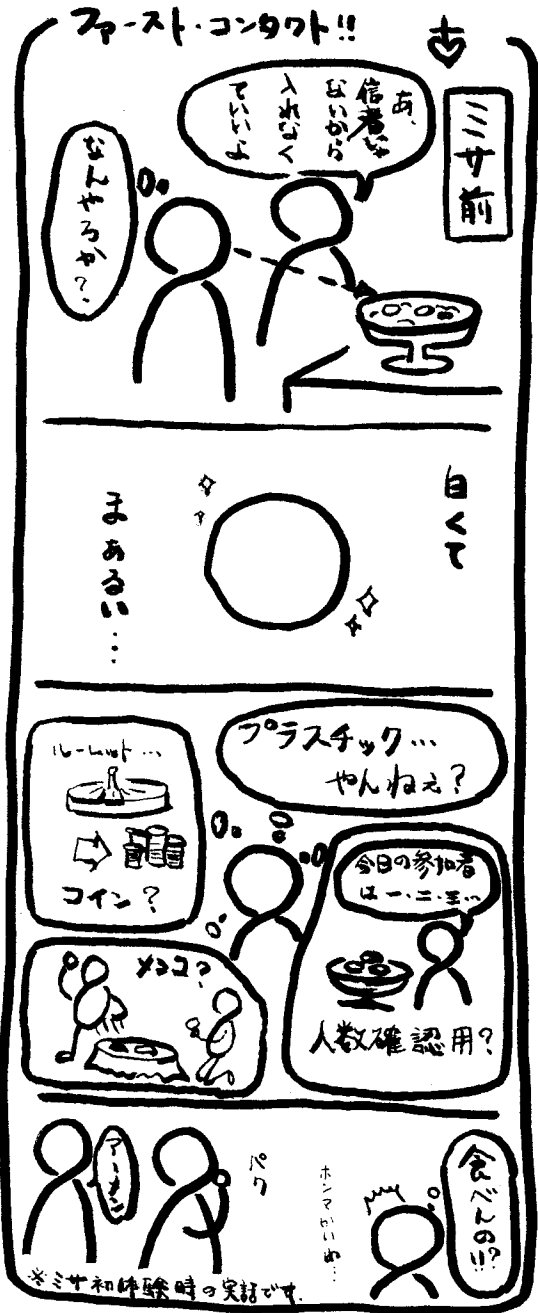 ファースト・コンタクト!!
ミサ前
あ、
信者じゃ
ないから
入れなく
ていいよ
なんやろか?
白くて
まぁるい...
プラスチック...
やんねぇ?
ルーレット...
コイン?
今日の参加者
は一、二、三、...
人数確認用?
メンコ?
食べんの!!?
ホンマかいね...
パク
アーメン
※ミサ初体験時の実話です.